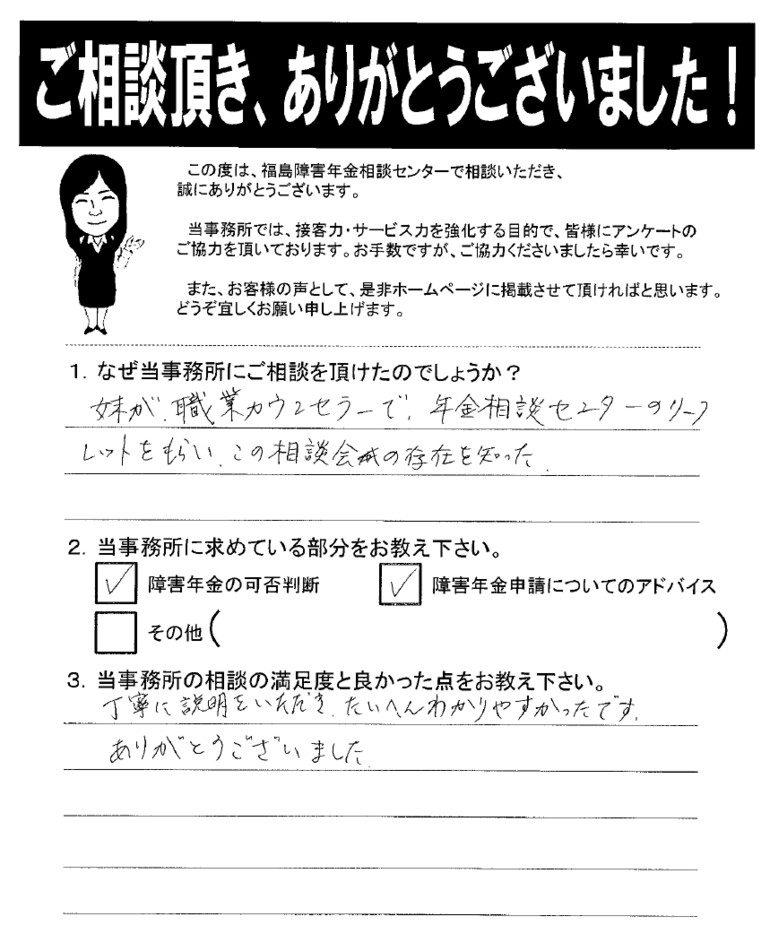 ご相談頂き、ありがとうございました！
この度は、福島障害年金相談センターで相談いただき、
誠にありがとうございます。
当事務所では、接客力・サービス力を強化する目的で、皆様にアンケートの
ご協力を頂いております。お手数ですが、ご協力くださいましたら幸いです。
また、お客様の声として、是非ホームページに掲載させて頂ければと思います。
どうぞ宜しくお願い申し上げます。
1．なぜ当事務所にご相談を頂けたのでしょうか？
妹が、職業カウンセラーで、年金相談センターのリーフ
レットをもらい、この相談会の存在を知った。
2．当事務所に求めている部分をお教え下さい。
✓ 障害年金の可否判断 ✓ 障害年金申請についてのアドバイス
その他（ ）
3．当事務所の相談の満足度と良かった点をお教え下さい。
丁寧に説明をいただき、たいへんわかりやすかったです。
ありがとうございました。